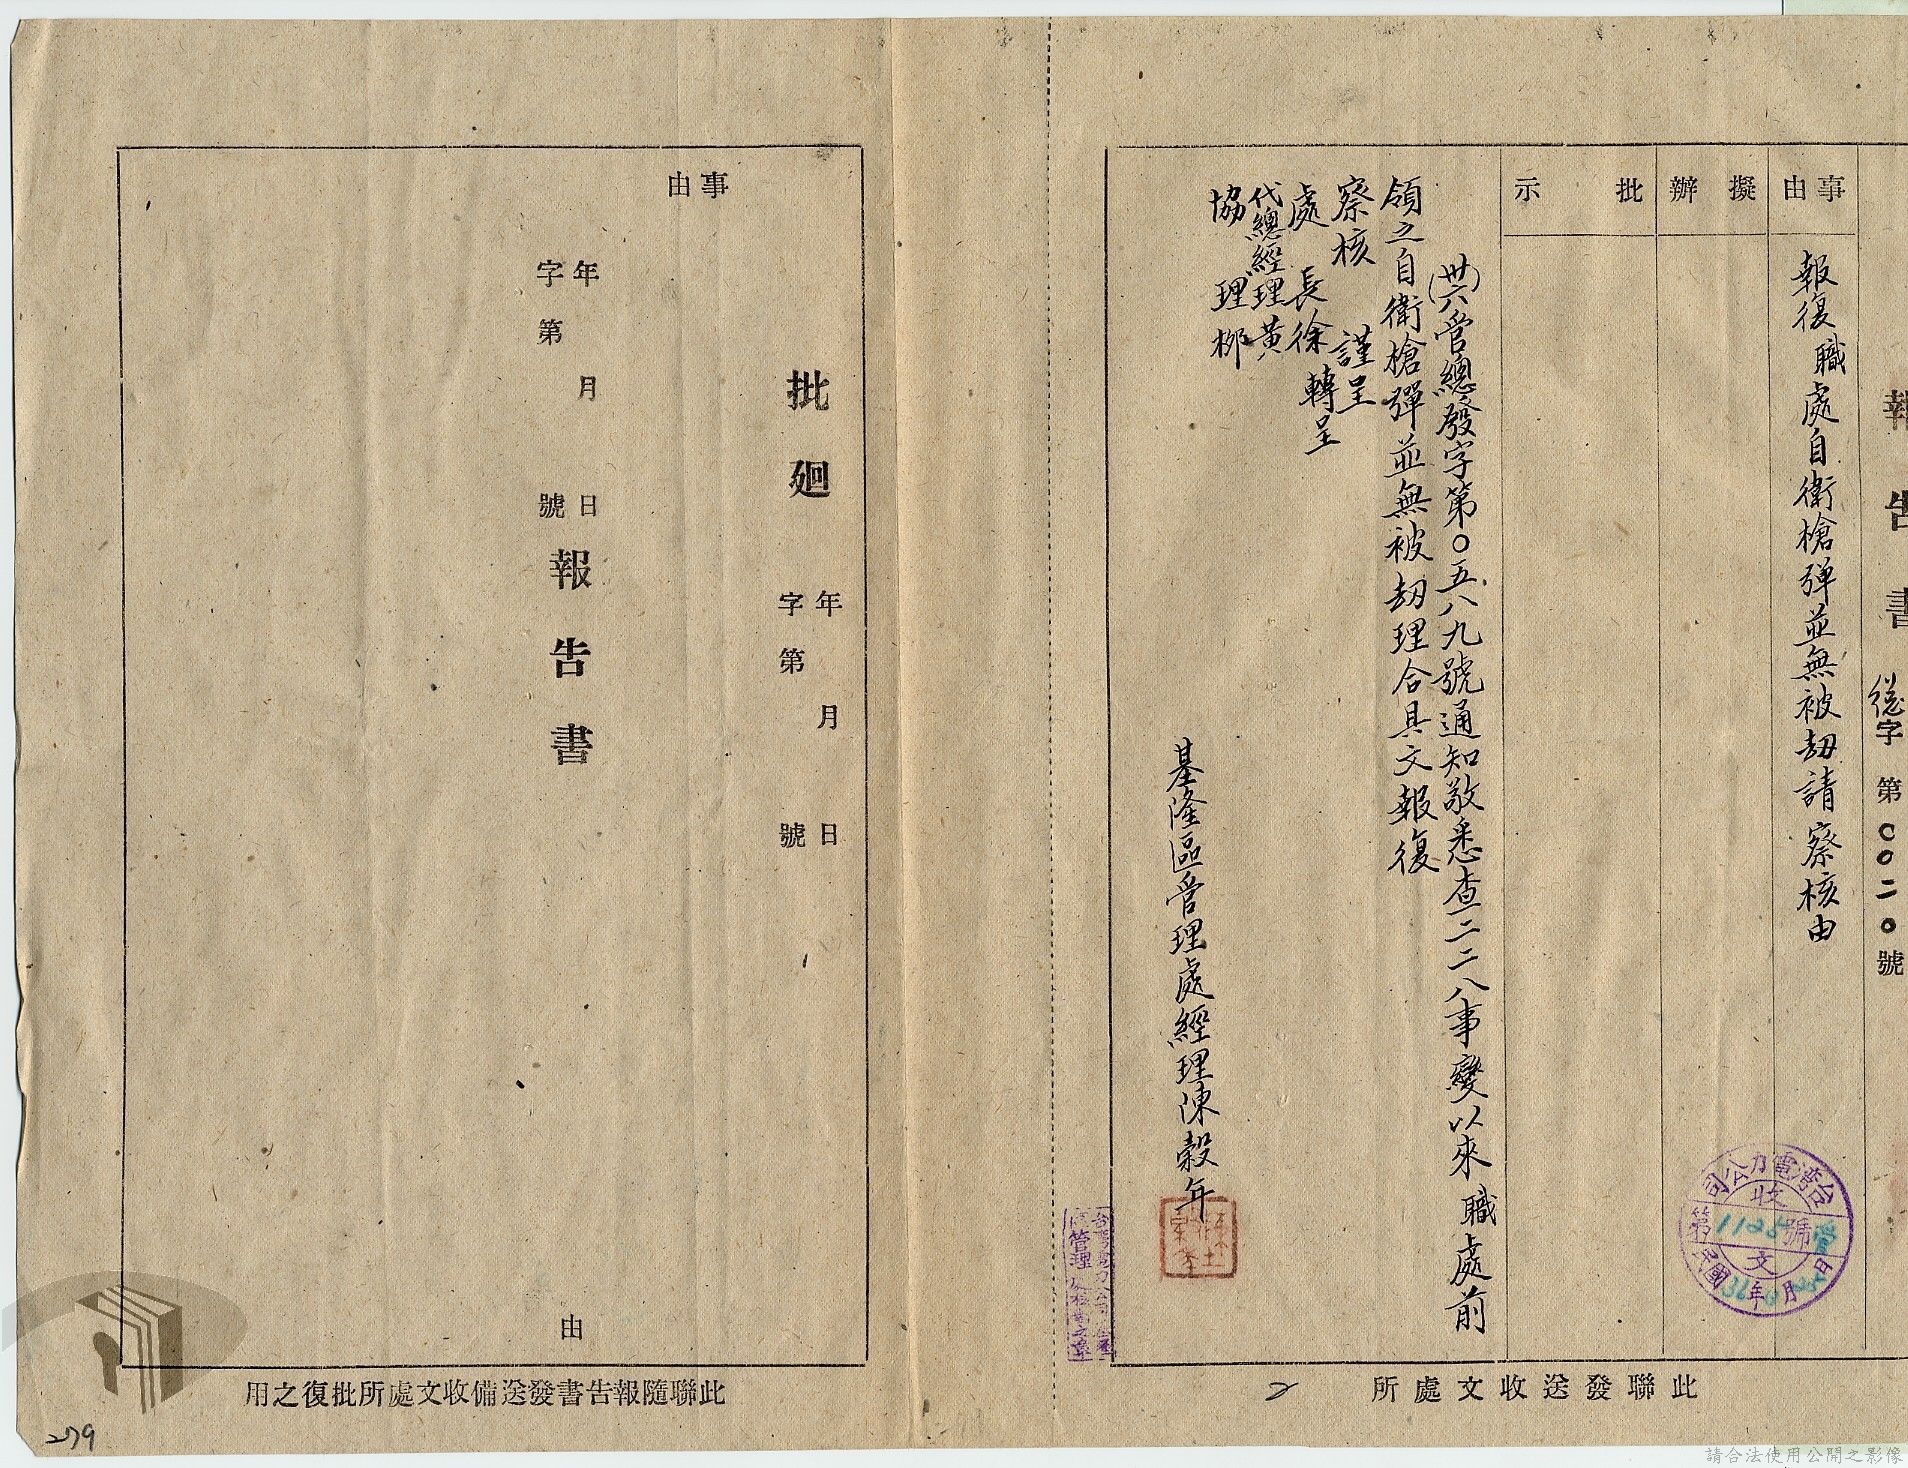 報告書
總字第〇〇二〇號
事由
報復職處自衛槍彈並無被刼請察核由
擬辦
批示
(卅六)管總發字第〇五八九號通知敬悉查二二八事變以來職處前
領之自衛槍彈並無被刼理合具文報復
察核 謹呈
處長徐 轉呈
代總經理黃
協理柳
基隆區管理處經理陳穀年
台灣電力公司
收文
第1125號
民國36年 月 日
此聯發送收文處所
2
批廻
年月日
字第號
事由
年月日
字第號
報告書
由
此聯隨報告書發送備收文處所批復之用
279
請合法使用公開之影像